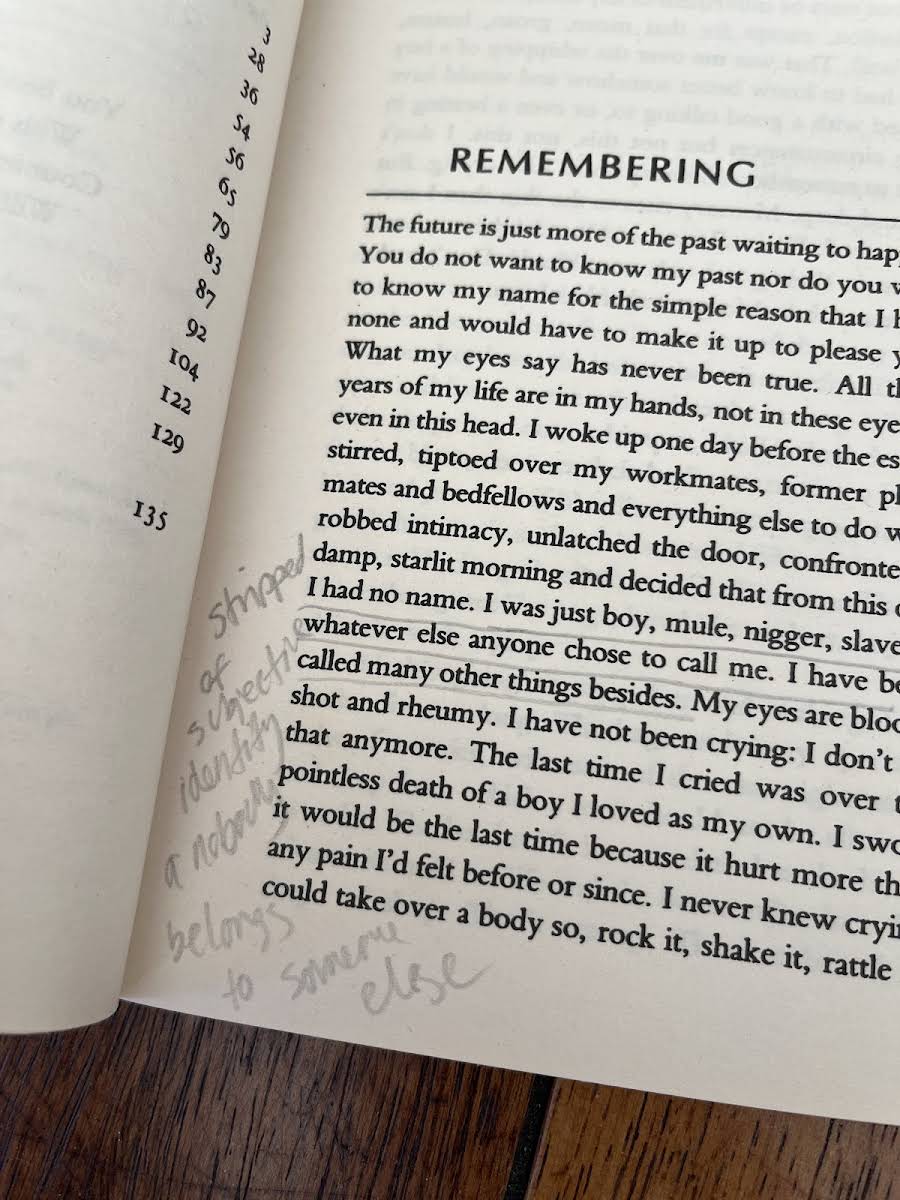 3
28
36
54
56
65
79
83
87
92
104
122
129
135
REMEMBERING
The future is just more of the past waiting to hap
You do not want to know my past nor do you
to know my name for the simple reason that I
none and would have to make it up to please
What my eyes say has never been true. All
years of my life are in my hands, not in these eye
even in this head. I woke up one day before the es
stirred, tiptoed over my workmates, former
mates and bedfellows and everything else to do
robbed intimacy, unlatched the door, confronte
damp, starlit morning and decided that from this
I had no name. I was just boy, mule, nigger, slave
whatever else anyone chose to call me. I have be
called many other things besides. My eyes are bloo
shot and rheumy. I have not been crying: I don't
that anymore. The last time I cried was over
pointless death of a boy I loved as my own. I swo
it would be the last time because it hurt more th
any pain I'd felt before or since. I never knew cryi
could take over a body so, rock it, shake it, rattle
stripped
of
subjective
identity
a nobody
belongs
to someone
else